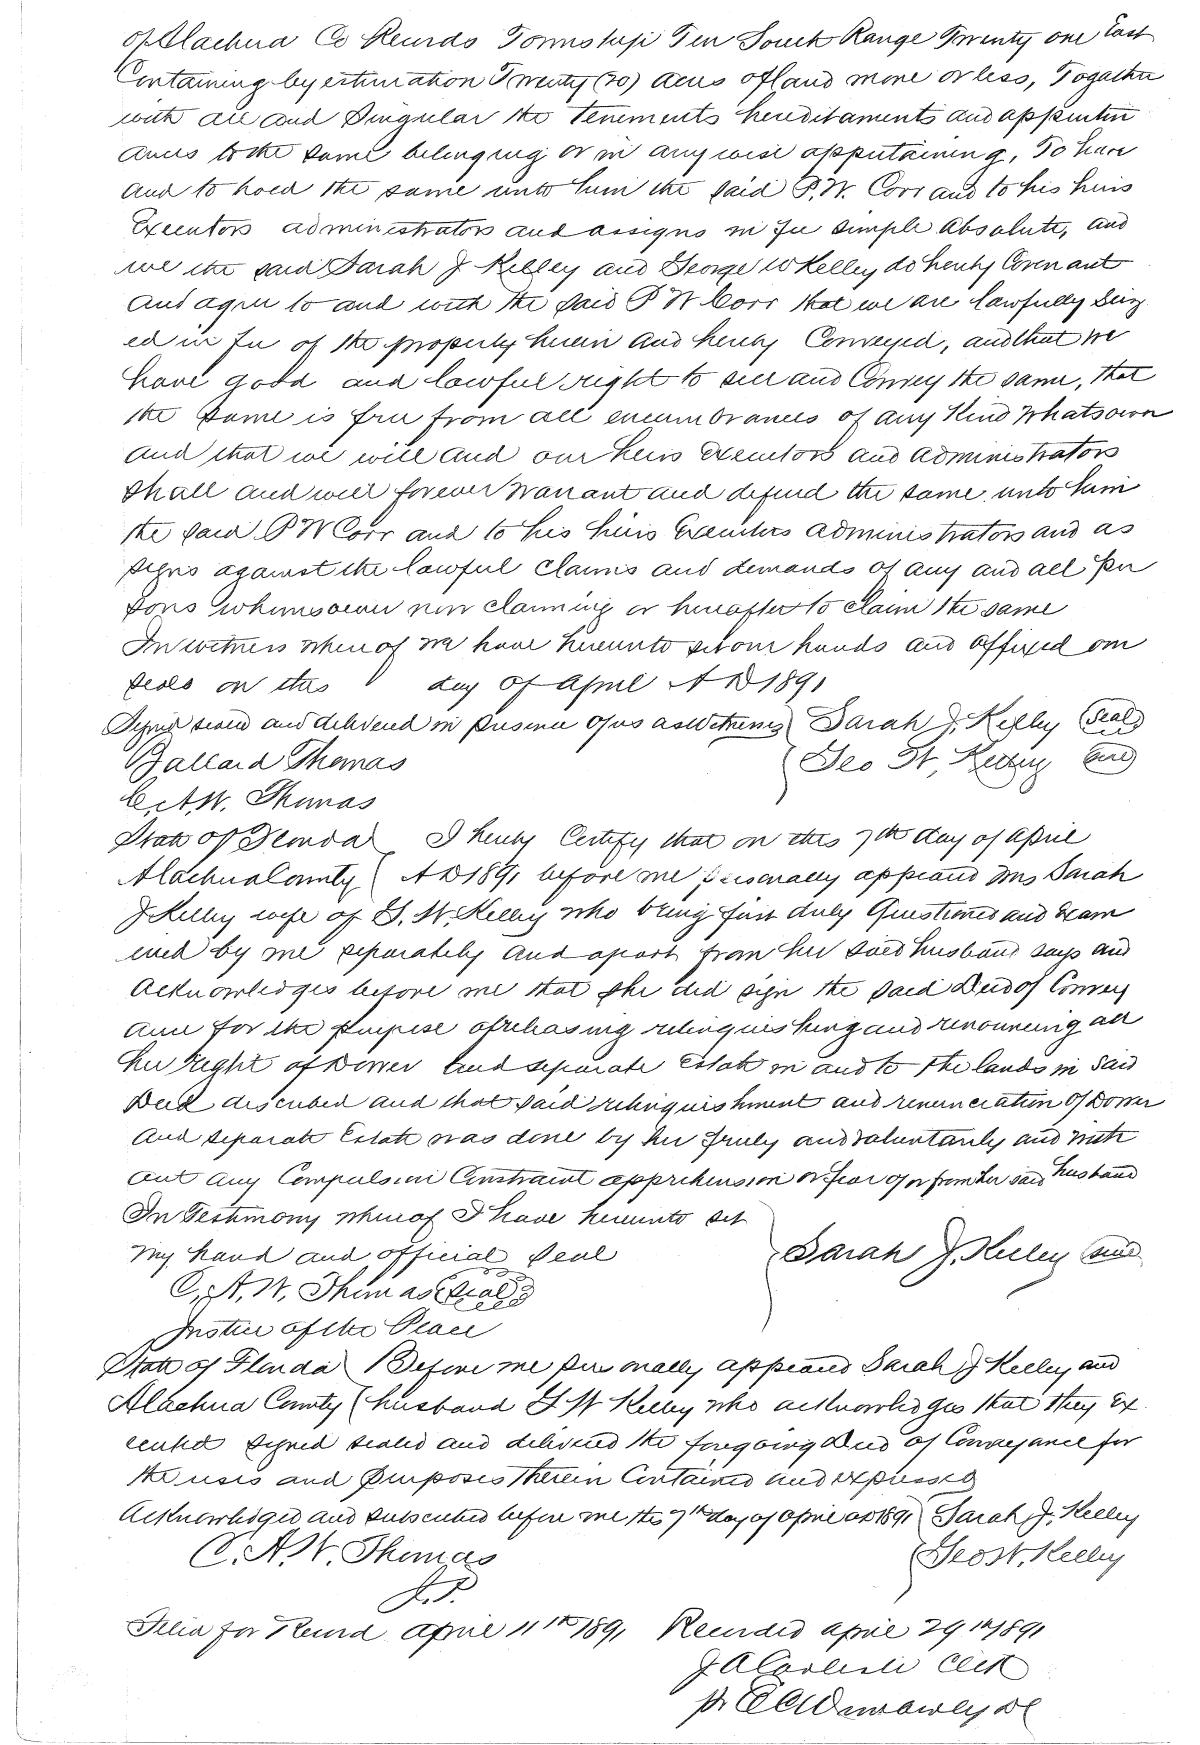 of Alachua Co Records Township Ten South Range Twenty one East
Containing by estimation Twenty (20) acres of land more or less, Togather
with all and Singular the Tenements hereditaments and appurten
ances to the same belonging or in any wise appertaining, To have
and to hold the same unto him the said P. W. Corr and to his heirs
Executors administrators and assigns in fee simple absolute, and
we the said Sarah J Kelley and George W Kelley do hereby Covenant
and agree to and with the said P W Corr that we are lawfully Seiz
ed in fee of the property herein and hereby Conveyed, and that we
have good and lawful right to sell and Convey the same, that
the same is free from all encumbrances of any Kind whatsoever
and that we will and our heirs Executors and administrators
shall and will forever warrant and defend the same unto him
the said P W Corr and to his heirs Executors administrators and as
signs against the lawful claims and demands of any and all per
sons whomsoever now claiming or hereafter to claim the same
In witness whereof we have hereunto set our hands and affixed our
seals on this day of April A D 1891
Signed sealed and delivered in presence of us as Witnesses Sarah J. Kelley (Seal)
Ballard Thomas Geo W. Kelley (Seal)
C. A. W. Thomas
State of Florida I hereby Certify that on this 7th day of April
Alachua County A D 1891 before me personally appeared Mrs Sarah
J Kelley wife of G. W. Kelley who being first duly Questioned and Exam
ined by me separately and apart from her said husband says and
acknowledges before me that she did sign the said Deed of Convey
ance for the purpose of releasing relinquishing and renouncing all
her right of Dower and separate Estate in and to the lands in said
Deed described and that said relinquishment and renunciation of Dower
and separate Estate was done by her freely and voluntarily and with
out any Compulsion Constraint apprehension or fear of or from her said husband
In Testimony whereof I have hereunto set
my hand and official seal Sarah J. Kelley (Seal)
C. A. W. Thomas (Seal)
Justice of the Peace
State of Florida Before me personally appeared Sarah J Kelley and
Alachua County husband G W Kelley who acknowledges that they Ex
ecuted signed sealed and delivered the foregoing Deed of Conveyance for
the uses and purposes therein Contained and expressed
Acknowledged and subscribed before me this 7th day of April AD 1891 Sarah J. Kelley
C. A. W. Thomas Geo W. Kelley
J. P.
Filed for Record april 11th 1891 Recorded april 29th 1891
J A Carlisle Clerk
pr